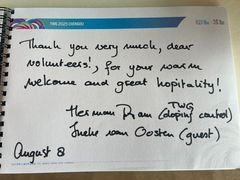 TWG 2025 CHENGDU
Thank you very much, dear
volunteers!, for your warm
welcome and great hopitality!
Herman Ram (TWG doping control)
Ineke van Oosten (guest)
August 8